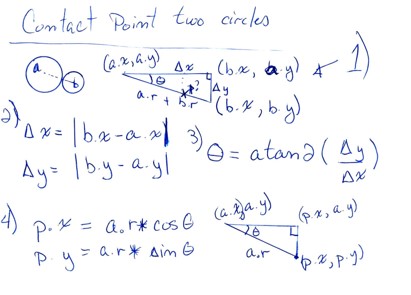 Contact Point two circles
1)
a. b
(a.x, a.y) Δx (b.x, a.y)
θ ? Δy
a.r + b.r (b.x, b.y)
2)
Δx = |b.x - a.x|
Δy = |b.y - a.y|
3) θ = atan2(Δy/Δx)
4) p.x = a.r * cosθ
p.y = a.r * sinθ
(a.x, a.y) (p.x, a.y)
θ
a.r (p.x, p.y)